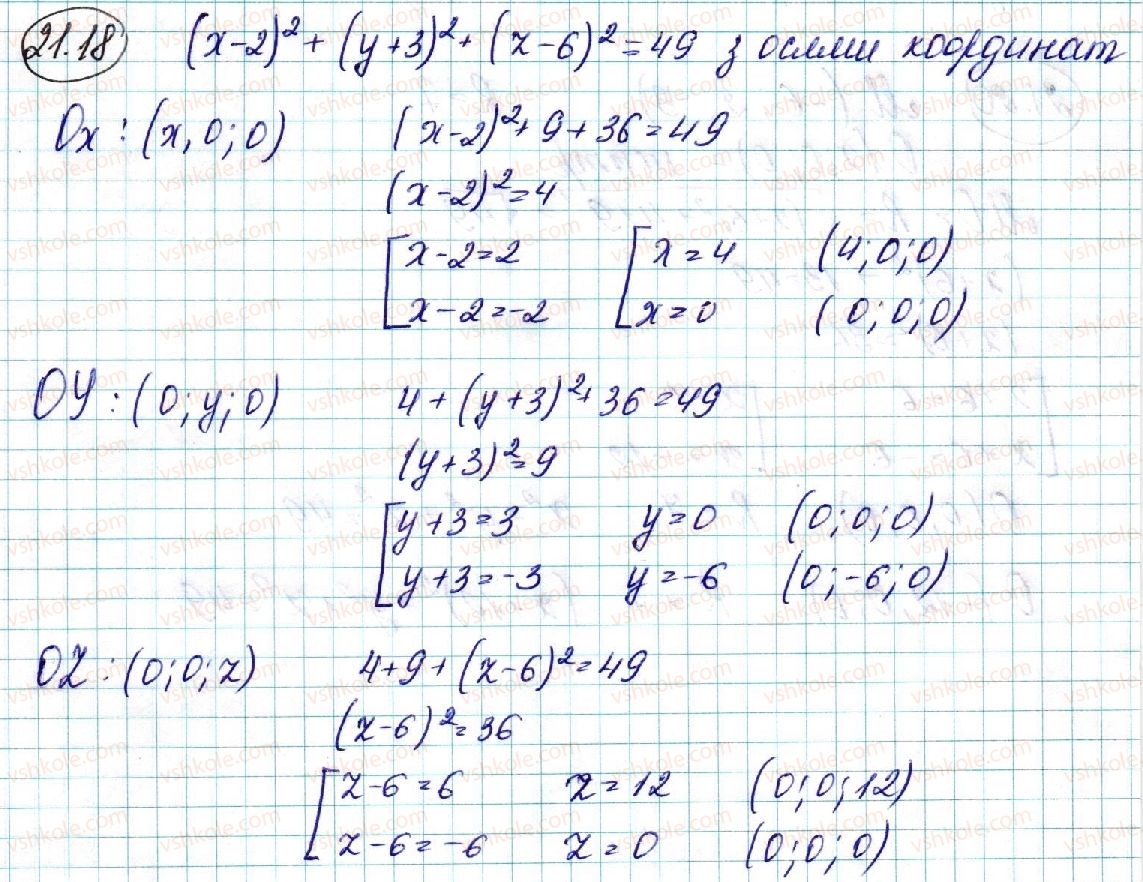 21.18 (x-2)²+(y+3)²+(z-6)²=49 з осями координат
Ox: (x,0;0) (x-2)²+9+36=49
(x-2)²=4
[x-2=2 [x=4 (4;0;0)
x-2=-2 x=0 (0;0;0)
OY: (0;y;0) 4+(y+3)²+36=49
(y+3)²=9
[y+3=3 y=0 (0;0;0)
y+3=-3 y=-6 (0;-6;0)
OZ: (0;0;z) 4+9+(z-6)²=49
(z-6)²=36
[z-6=6 z=12 (0;0;12)
z-6=-6 z=0 (0;0;0)
vshkole.com